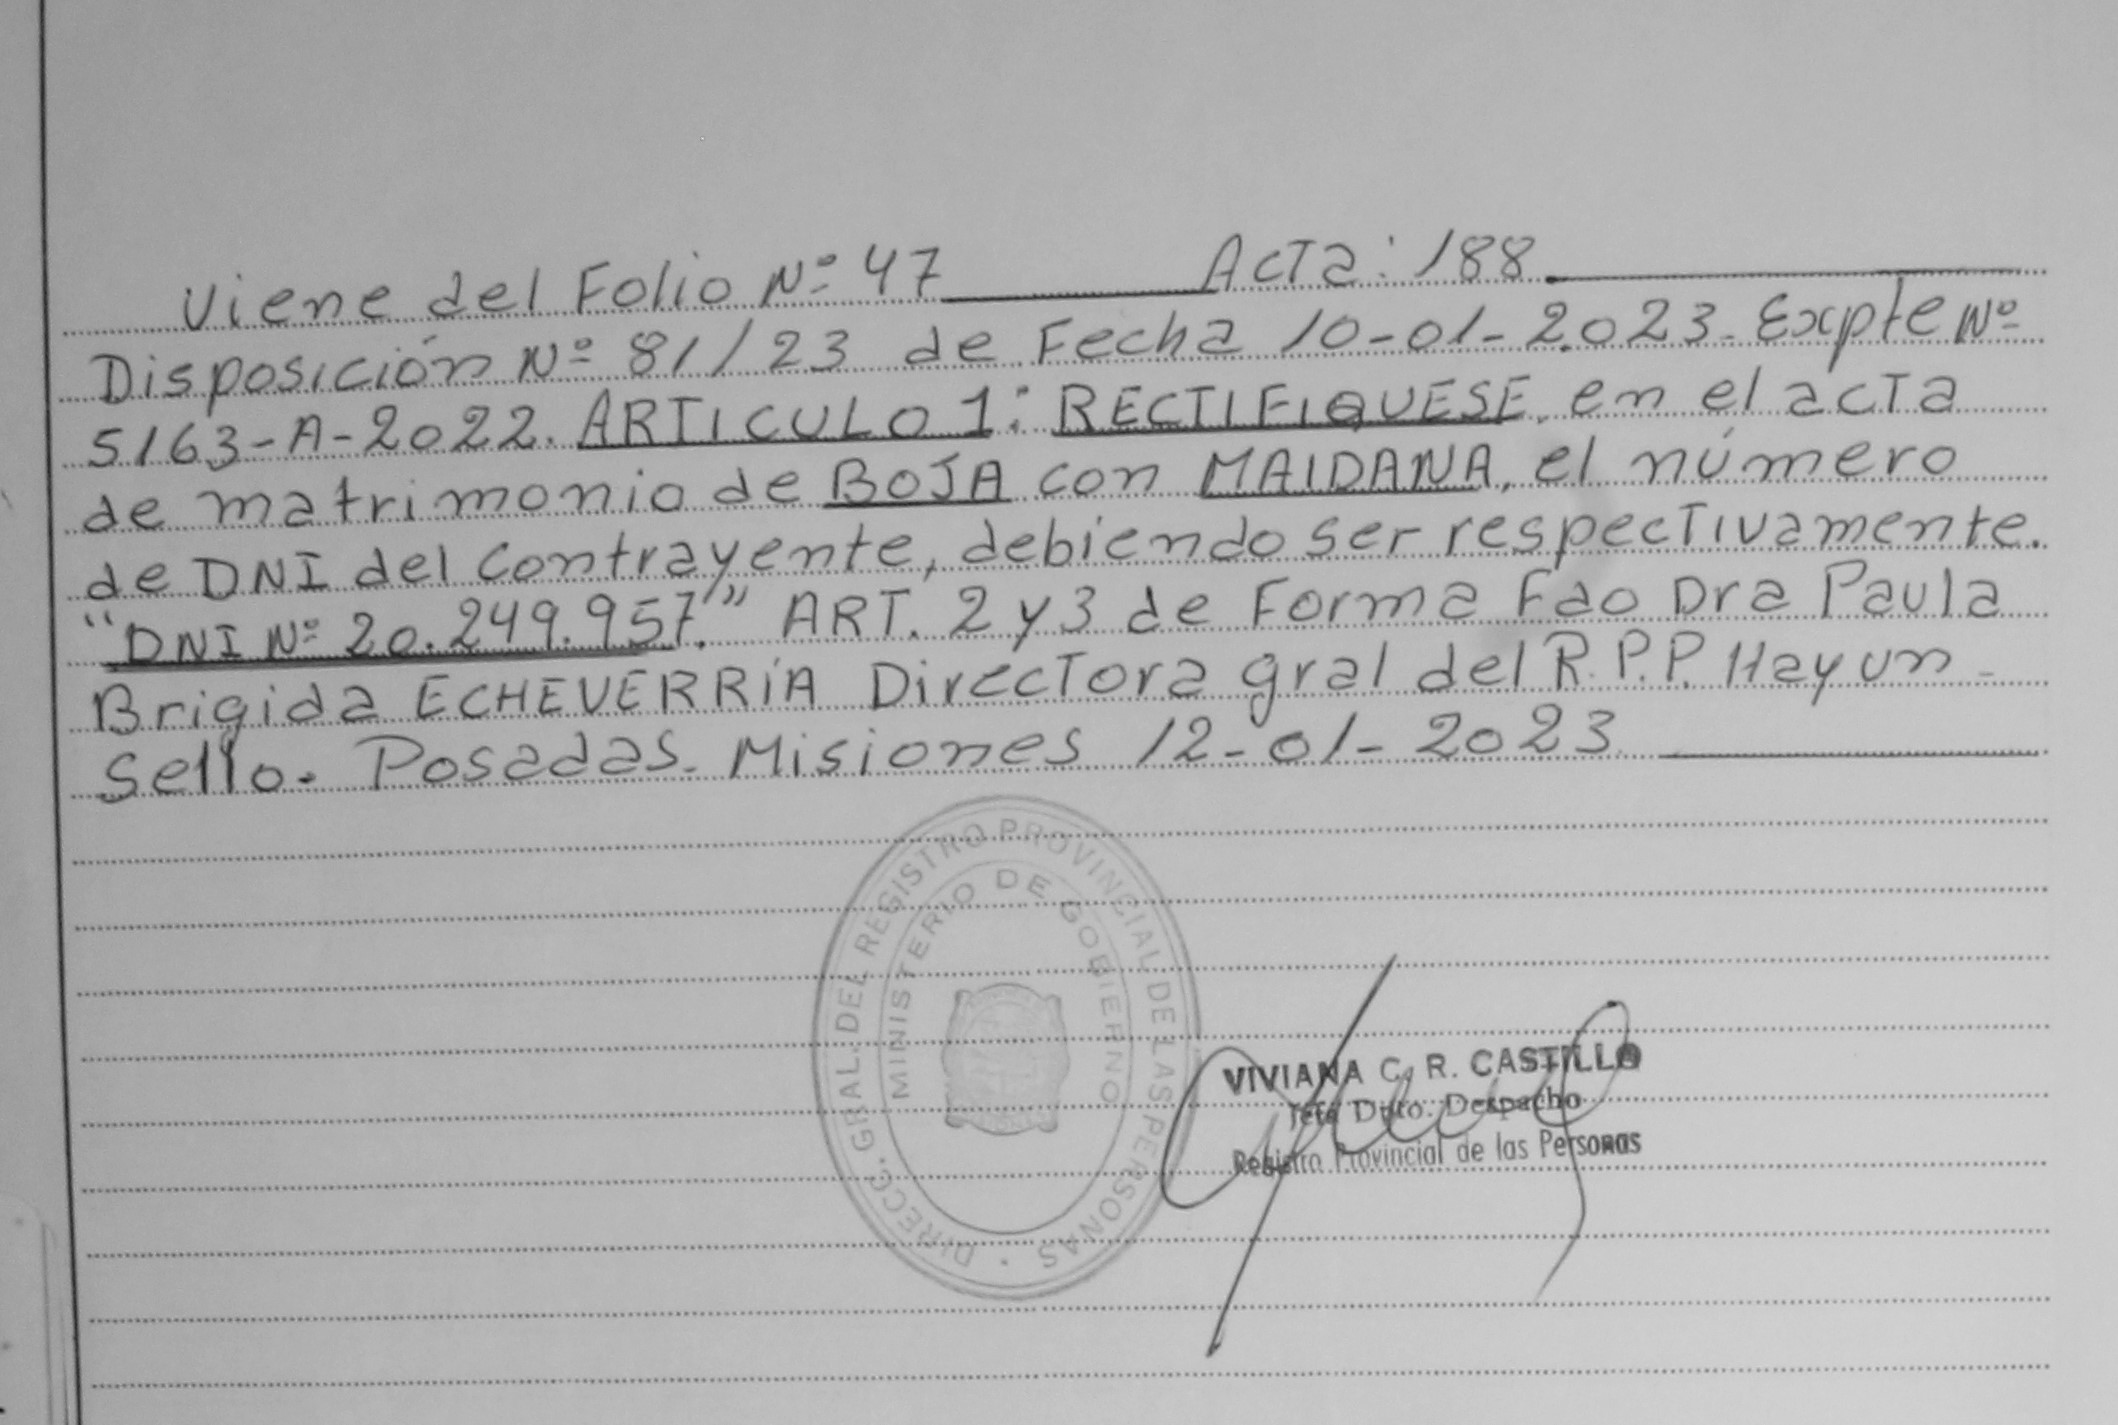 Viene del Folio Nº 47 Acta: 188.
Disposición Nº 81/23 de Fecha 10-01-2.023. Expte Nº
5163-A-2022. ARTICULO 1: RECTIFIQUESE, en el acta
de matrimonio de BOJA con MAIDANA, el número
de DNI del contrayente, debiendo ser respectivamente.
"DNI Nº 20.249.957." ART. 2 y 3 de Forma Fdo Dra Paula
Brigida ECHEVERRÍA Directora gral del R.P.P. Hay un-
Sello. Posadas. Misiones 12-01-2023
DIRECC. GRAL. DEL REGISTRO PROVINCIAL DE LAS PERSONAS
MINISTERIO DE GOBIERNO
VIVIANA C. R. CASTILLO
Jefa Dpto. Despacho
Registro Provincial de las Personas